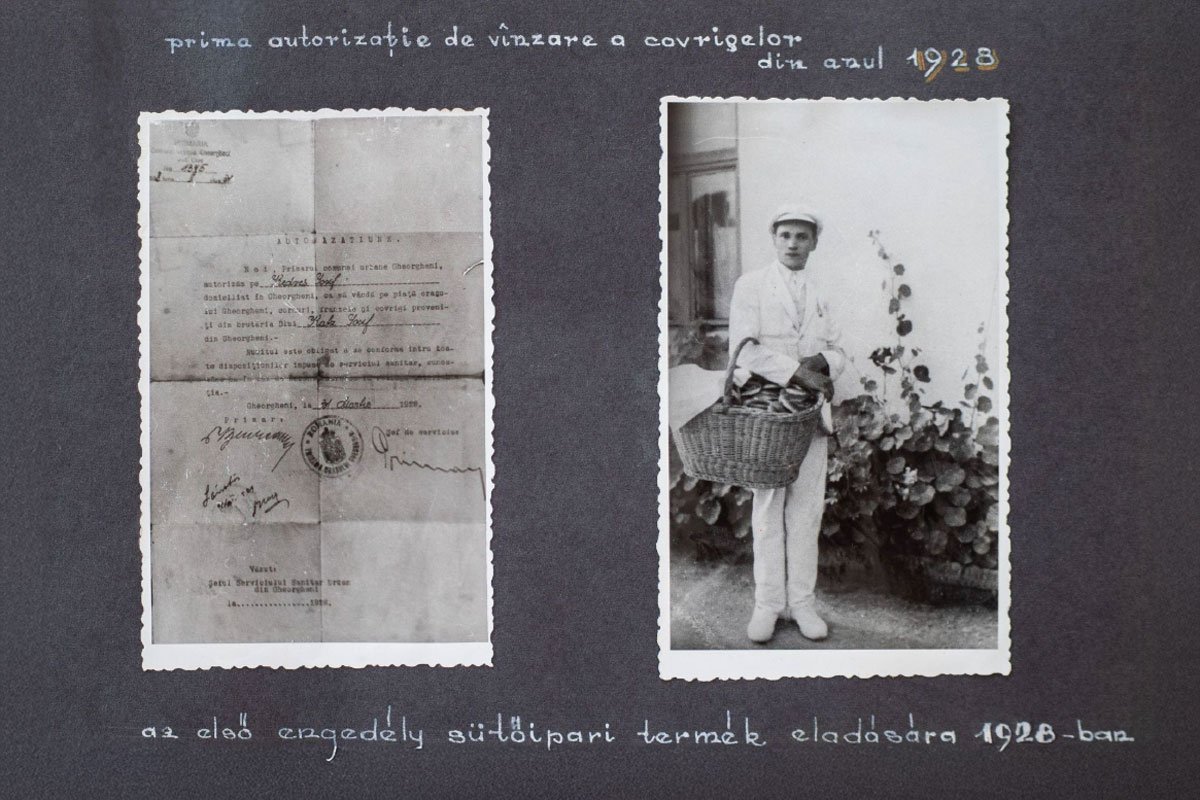 prima autorizație de vînzare a covrigelor
din anul 1928
ROMANIA
No. 1395
AUTORIZATIUNE.
Noi Primarul comunei urbane Gheorgheni,
autorizăm pe Iosif
domiciliat în Gheorgheni, ca să vândă pe piață orașu-
lui Gheorgheni, cornuri, franzele și covrigi proveni-
ți din brutăria Dlui Iosif
din Gheorgheni.-
Numitul este obligat a se conforma întru toa-
te dispozițiunilor impuse de serviciul sanitar,
ția.-
Gheorgheni, la 31 Martie 1928.
Primar:
Șef de serviciu
ROMANIA
Văzut:
Șeful Serviciului Sanitar Urban
din Gheorgheni
la................1928.
az első engedély sütőipari termék eladására 1928-ban